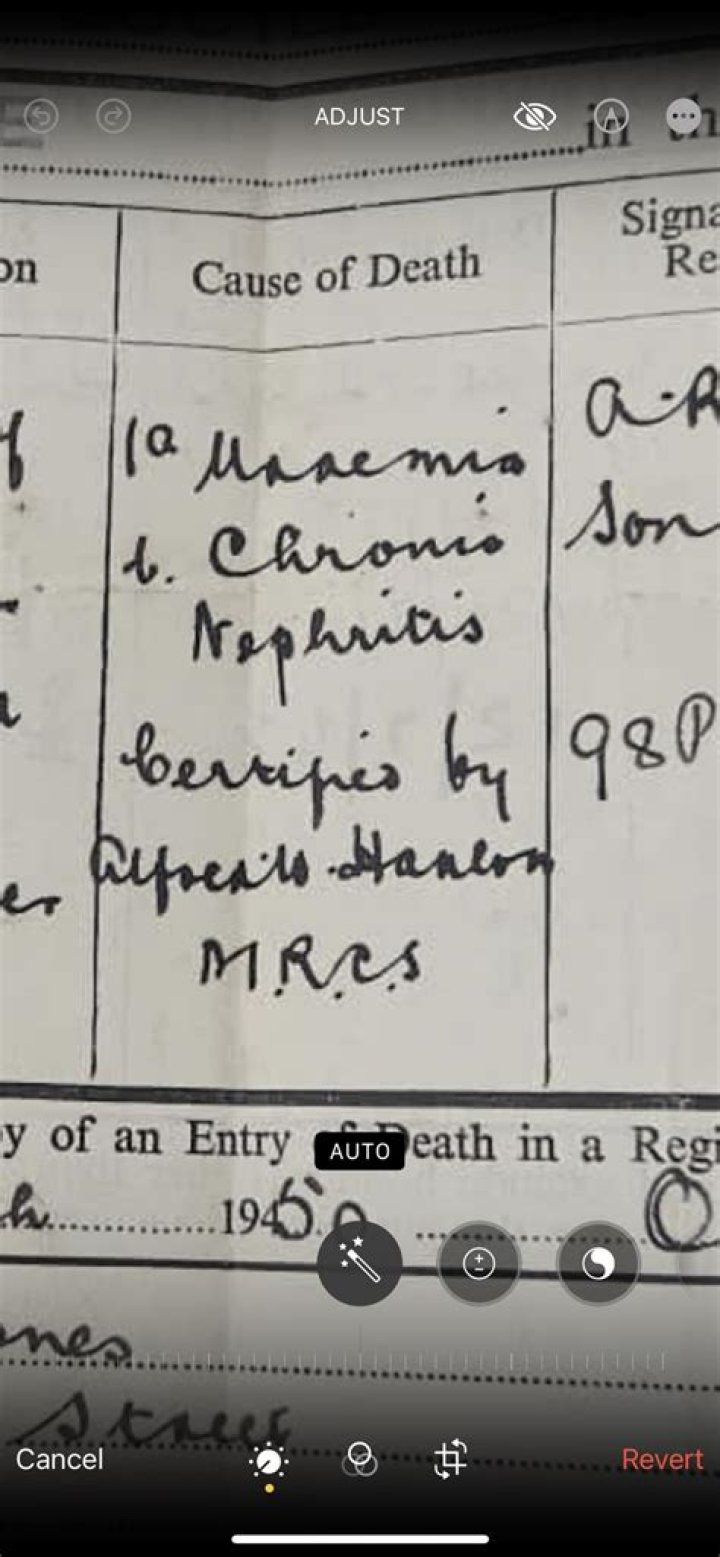 ADJUST
in th
on
Cause of Death
Signa
Re
1a Uraemia
b. Chronic
Nephritis
a. R
Son
Certified by
98 P
Hanlon
er
M.R.C.S
y of an Entry of Death in a Regi
AUTO
h 1950
ones
Street
Cancel
Revert